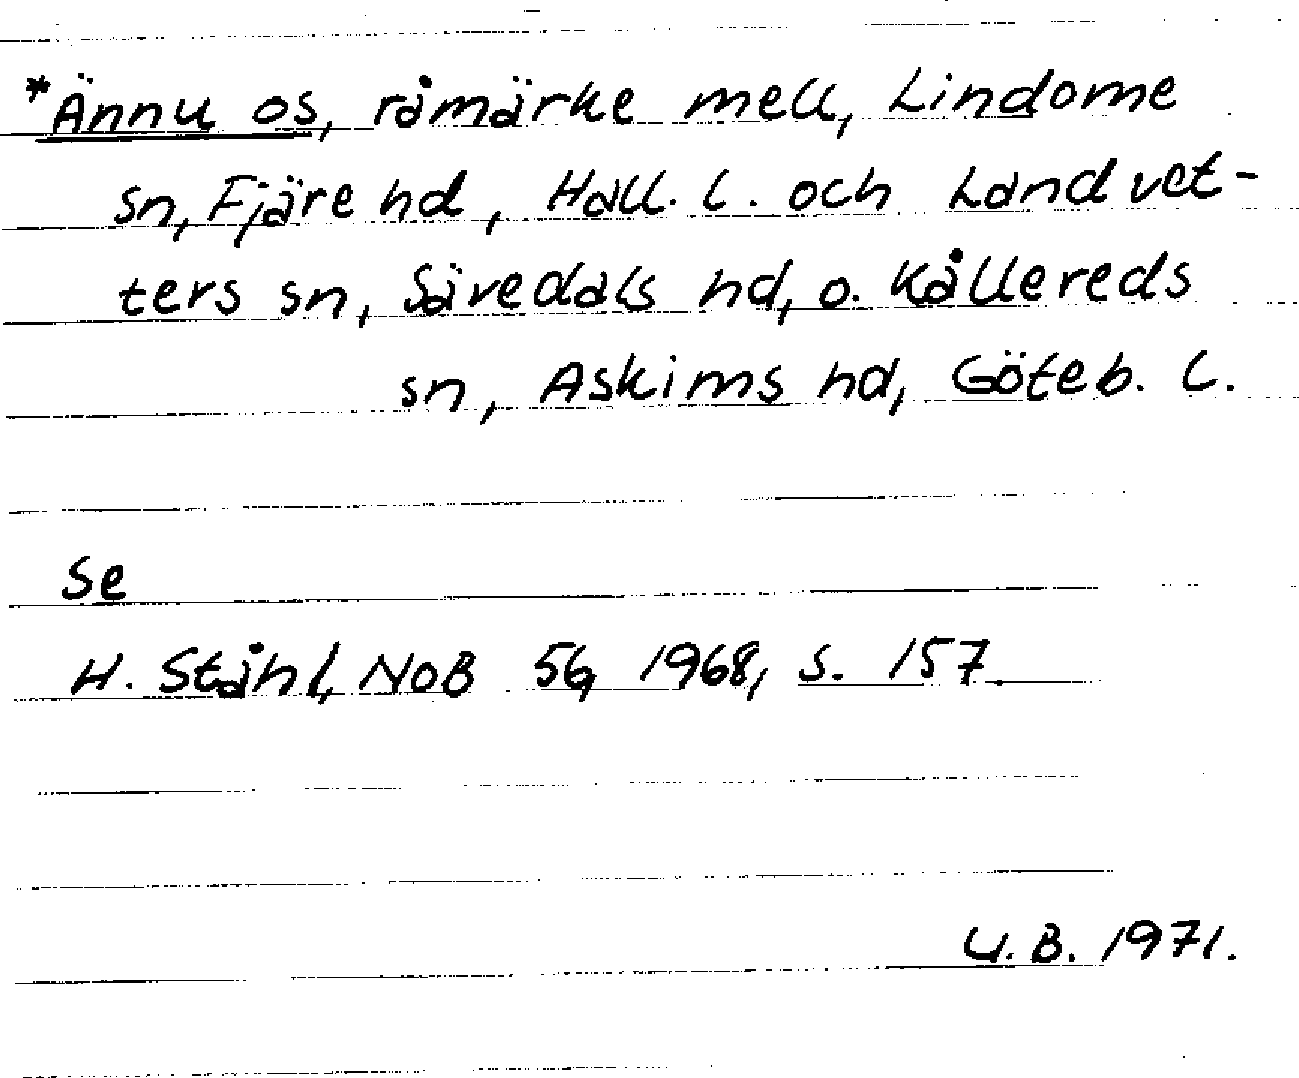 *Ännu os, råmärke mell, Lindome
sn, Fjäre hd, Hall. l. och Landvet-
ters sn, Sävedals hd, o. Kållereds
sn, Askims hd, Göteb. l.
Se
H. Ståhl, NoB 56, 1968, s. 157.
U.B. 1971.